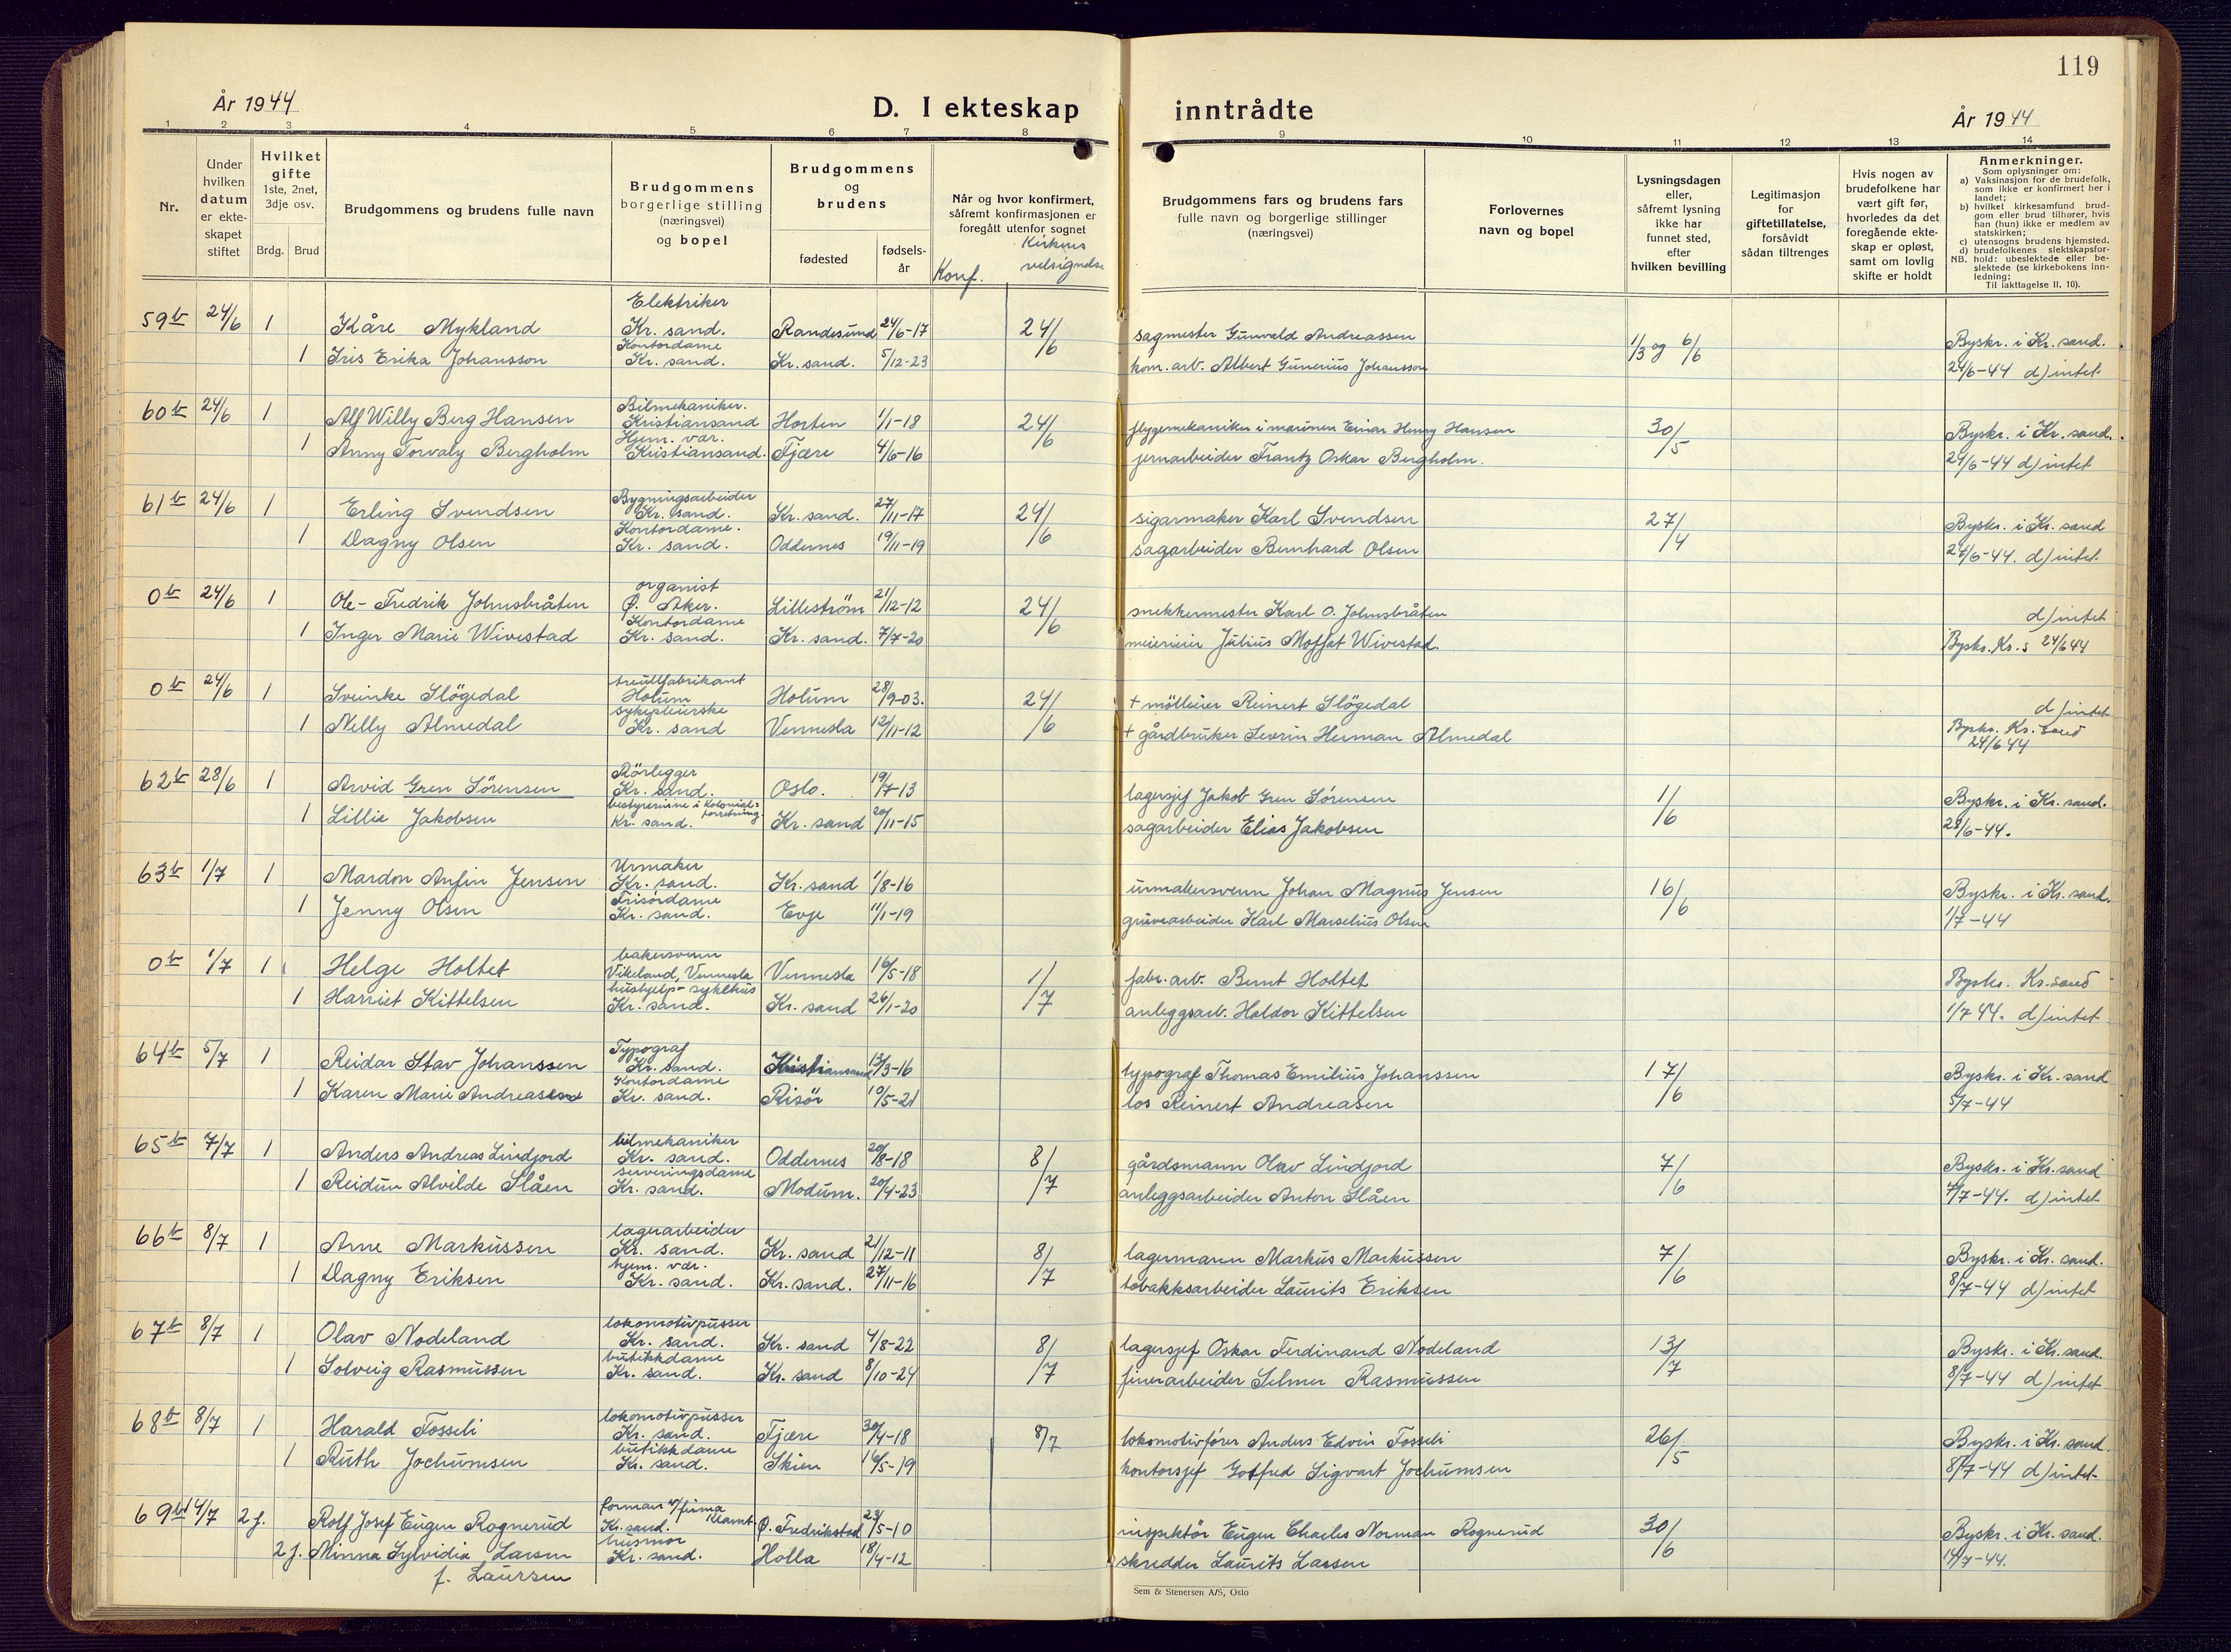 119
År 1944
D. I ekteskap inntrådte
År 1944
1 2 3 4 5 6 7 8 9 10 11 12 13 14
Nr.
Under hvilken datum er ekteskapet stiftet
Hvilket gifte 1ste, 2net, 3dje osv.
Brdg. Brud
Brudgommens og brudens fulle navn
Brudgommens borgerlige stilling (næringsvei) og bopel
Brudgommens og brudens
fødested
fødselsår
Når og hvor konfirmert, såfremt konfirmasjonen er foregått utenfor sognet
Konf. Kirkens velsignelse
Brudgommens fars og brudens fars fulle navn og borgerlige stillinger (næringsvei)
Forlovernes navn og bopel
Lysningsdagen eller, såfremt lysning ikke har funnet sted, efter hvilken bevilling
Legitimasjon for giftetillatelse, forsåvidt sådan tiltrenges
Hvis nogen av brudefolkene har vært gift før, hvorledes da det foregående ekteskap er opløst, samt om lovlig skifte er holdt
Anmerkninger.
Som oplysninger om:
a) Vaksinasjon for de brudefolk, som ikke er konfirmert her i landet;
b) hvilket kirkesamfund brudgom eller brud tilhører, hvis han (hun) ikke er medlem av statskirken;
c) utensogns brudens hjemsted.
d) brudefolkenes slektskapsforhold: ubeslektede eller beslektede (se kirkebokens innledning;
NB. Til iakttagelse II. 10).
59b 24/6 1 Kåre Mykland Elektriker Kr. sand. Randesund 24/6-17 24/6 sagmester Gunvald Andreassen 1/3 og 6/6 Byskr. i Kr. sand.
1 Iris Erika Johansson Kontordame Kr. sand. Kr. sand. 5/12-23 kom. arb. Albert Gunerius Johansson 24/6-44 d) intet
60b 24/6 1 Alf Willy Berg Hansen Bilmekaniker. Kristiansand Horten 1/1-18 24/6 flygemekaniker i marinen Einar Henry Hansen 30/5 Byskr. i Kr. sand.
1 Anny Torvaly Bergholm Hjem. vær. Kristiansand. Fjære 4/6-16 jernarbeider Frantz Oskar Bergholm. 24/6-44 d) intet
61b 24/6 1 Erling Svendsen Bygningsarbeider Kr. sand. Kr. sand. 27/11-17 24/6 sigarmaker Karl Svendsen 27/4 Byskr. i Kr. sand
1 Dagny Olsen Kontordame. Kr. sand. Oddernes 19/11-19 sagarbeider Bernhard Olsen 24/6-44. d) intet
0b 24/6 1 Ole-Fredrik Johnsbråten organist Ø. Aker. Lilleström 21/12-12 24/6 snekkermester Karl O. Johnsbråten d) intet
1 Inger Marie Wivestad Kontordame Kr. sand. Kr. sand. 7/7-20 meierieier Julius Moffat Wivestad. Byskr. Kr. s 24/6 44
0b 24/6 1 Sveinke Slögedal treullfabrikant Holum Holum 28/9-03. 24/6 + mölleier Reinert Slögedal d) intet
1 Nelly Almedal sykepleierske Kr. sand Vennesla 12/11-12 + gårdbruker Severin Herman Almedal Byskr. Kr. sand 24/6 44
62b 28/6 1 Arvid Gren Sörensen Rörlegger Kr. sand. Oslo. 19/7-13 lagersjef Jakob Gren Sörensen 1/6 Byskr. i Kr. sand.
1 Lillie Jakobsen bestyrerinne i Kolonial= forretning. Kr. sand. Kr. sand 20/11-15 sagarbeider Elias Jakobsen 28/6-44.
63b 1/7 1 Mardon Anfin Jensen Urmaker Kr. sand. Kr. sand 1/8-16 urmakersvenn Johan Magnus Jensen 16/6 Byskr. i Kr. sand.
1 Jenny Olsen Frisördame Kr. sand. Evje 11/1-19 gruvearbeider Karl Marselius Olsen 1/7-44
0b 1/7 1 Helge Holtet bakersvenn Vikeland, Vennesla Vennesla 16/5-18 1/7 fabr. arb. Bernt Holtet Byskr. Kr. sand
1 Harriet Kittelsen hushjelp-sykehus Kr. sand. Kr. sand 26/1-20 anleggsarb. Haldor Kittelsen 1/7 44. d) intet
64b 5/7 1 Reidar Stav Johanssen Typograf Kr. sand. Kristiansand 13/3-16 typograf Thomas Emilius Johanssen 17/6 Byskr. i Kr. sand
1 Karen Marie Andreasen Kontordame Kr. sand. Risör 10/5-21 los Reinert Andreasen 5/7-44
65b 7/7 1 Anders Andreas Lindjord bilmekaniker Kr. sand. Oddernes 20/8-18 8/7 gårdsmann Olav Lindjord 7/6 Byskr. i Kr. sand
1 Reidun Alvilde Slåen serveringsdame Kr. sand. Modum. 20/4-23 anleggsarbeider Anton Slåen 7/7-44. d) intet
66b 8/7 1 Arne Markussen lagerarbeider Kr. sand. Kr. sand 21/12-11 8/7 lagermann Markus Markussen 7/6 Byskr. i Kr. sand.
1 Dagny Eriksen hjem. vær. Kr. sand. Kr. sand. 27/11-16 tobakksarbeider Laurits Eriksen 8/7-44 d) intet
67b 8/7 1 Olav Nodeland lokomotivpusser Kr. sand. Kr. sand 4/8-22 8/7 lagersjef Oskar Ferdinand Nodeland 13/7 Byskr. i Kr. sand.
1 Solveig Rasmussen butikkdame Kr. sand. Kr. sand 8/10-24 finerarbeider Selmer Rasmussen 8/7-44 d) intet
68b 8/7 1 Harald Fosseli lokomotivpusser Kr. sand. Fjære 30/4-18 8/7 lokomotivförer Anders Edvin Fosseli 26/5 Byskr. i Kr. sand
1 Ruth Jochumsen butikkdame Kr. sand. Skien 16/5-19 kontorsjef Gotfred Sigvart Jochumsen 8/7-44 d) intet
69b 14/7 2 g. Rolf Josef Eugen Rognerud forman v/ firma Kr. sand. Ø. Fredrikstad 23/5-10 inspektör Eugen Charles Norman Rognerud 30/6 Byskr. i Kr. sand.
2 g. Minna Sylvidia Larsen husmor Kr. sand. Holla 18/4-12 skredder Laurits Lassen 14/7-44.
f. Laursen
Sem & Stenersen A/S, Oslo